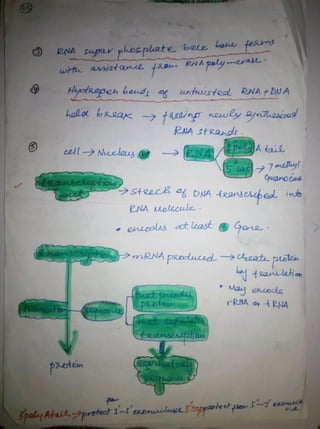 ③ RNA sugar phosphate back bone forms
with assistance from RNA polymerase.
④ Hydrogen bonds of untwisted RNA+DNA
helix break → freeing newly synthesized
RNA strands.
⑤ cell → Nucleus → RNA
3' poly A tail
5' cap → 7 methyl
Guanosine
transcription
unit → strech of DNA transcriped into
RNA molecule.
• encodes atleast Gene.
transcription → mRNA produced → create protein
by translation
• May encode
rRNA or tRNA
translation sequence
that encodes
protein
that regulates
transcription
protein
regulatory
sequence
3' poly A tail → protect 3'-5' exonuclease 5' cap protect from 5'-3' exonuclease